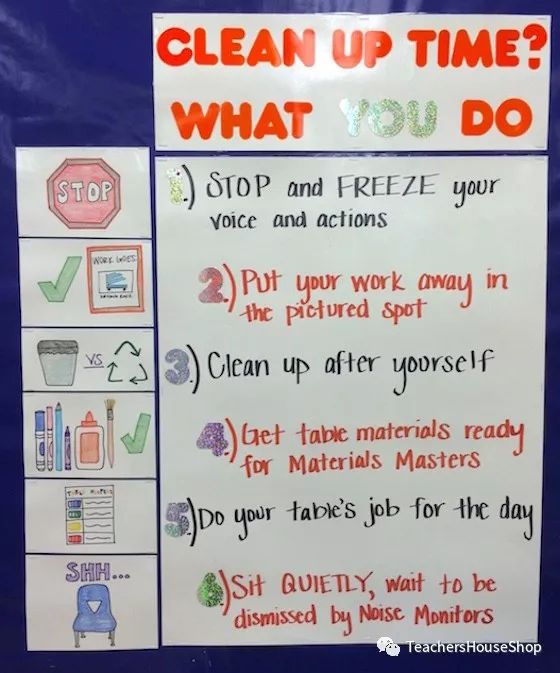 CLEAN UP TIME?
WHAT YOU DO
STOP
1.) STOP and FREEZE your
voice and actions
WORK GOES
2.) Put your work away in
the pictured spot
VS
3.) Clean up after yourself
4.) Get table materials ready
for Materials Masters
5.) Do your table's job for the day
SHH...
6.) Sit QUIETLY, wait to be
dismissed by Noise Monitors
TeachersHouseShop